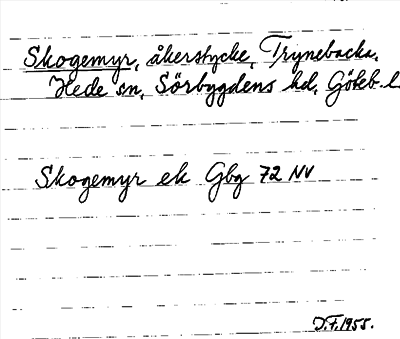 Skogemyr, åkerstycke, Trynebacka,
Hede sn, Sörbygdens hd, Göteb. l.
Skogemyr ek Gbg 72 NV
D.F. 1955.